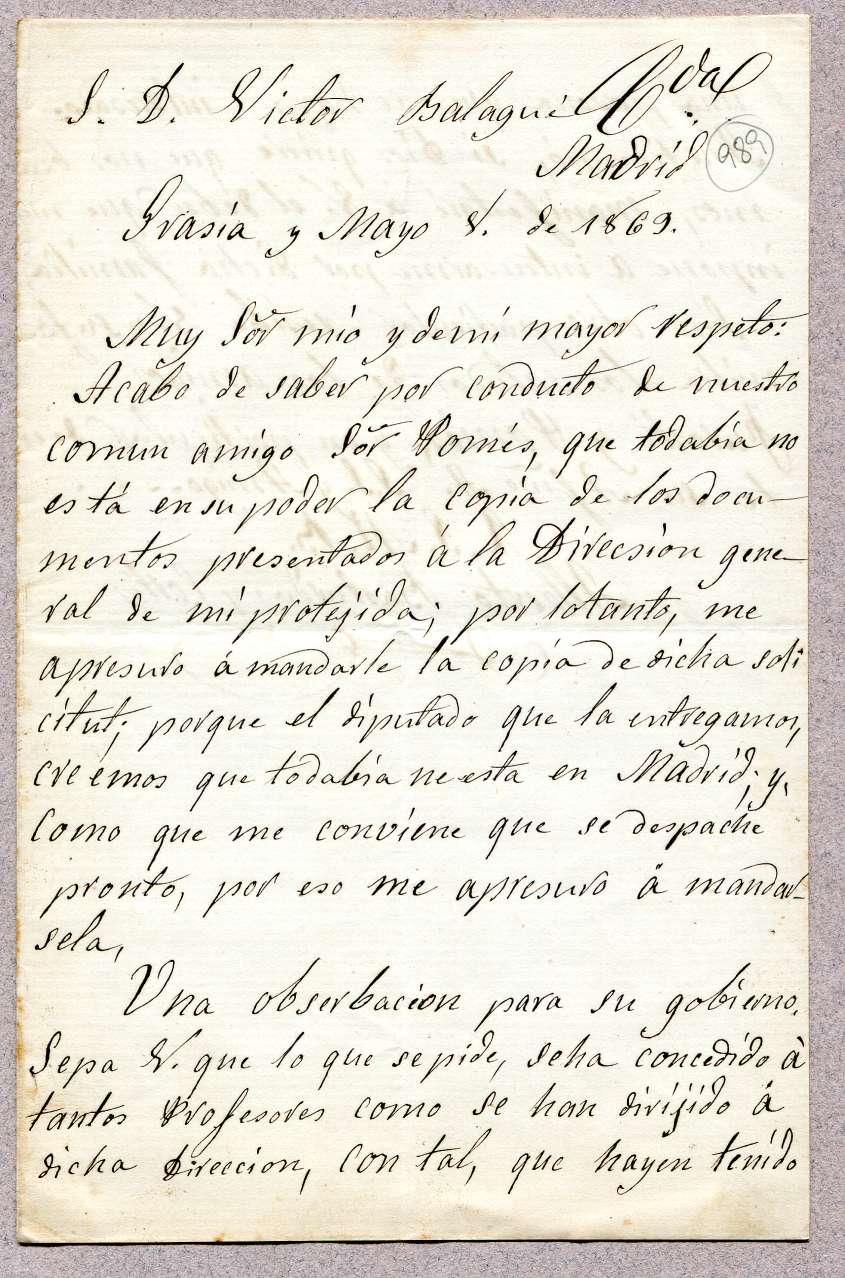 S. D. Victor Balagué Cda
Madrid
989
Grasia y Mayo 8. de 1869.
Muy Sor mio y de mi mayor respeto:
Acabo de saber por conducto de nuestro
comun amigo Sor Pomés, que todabia no
está en su poder la copia de los docu-
mentos presentados á la Direcsion gene-
ral de mi protejida; por lo tanto, me
apresuro á mandarle la copia de dicha soli
citut; porque el diputado que la entregamos,
creemos que todabia no esta en Madrid; y,
como que me conviene que se despache
pronto, por eso me apresuro á mandar-
sela,
Una obserbacion para su gobierno.
Sepa V. que lo que se pide, se ha concedido á
tantos Profesores como se han dirijido á
dicha Direccion, con tal, que hayen tenido